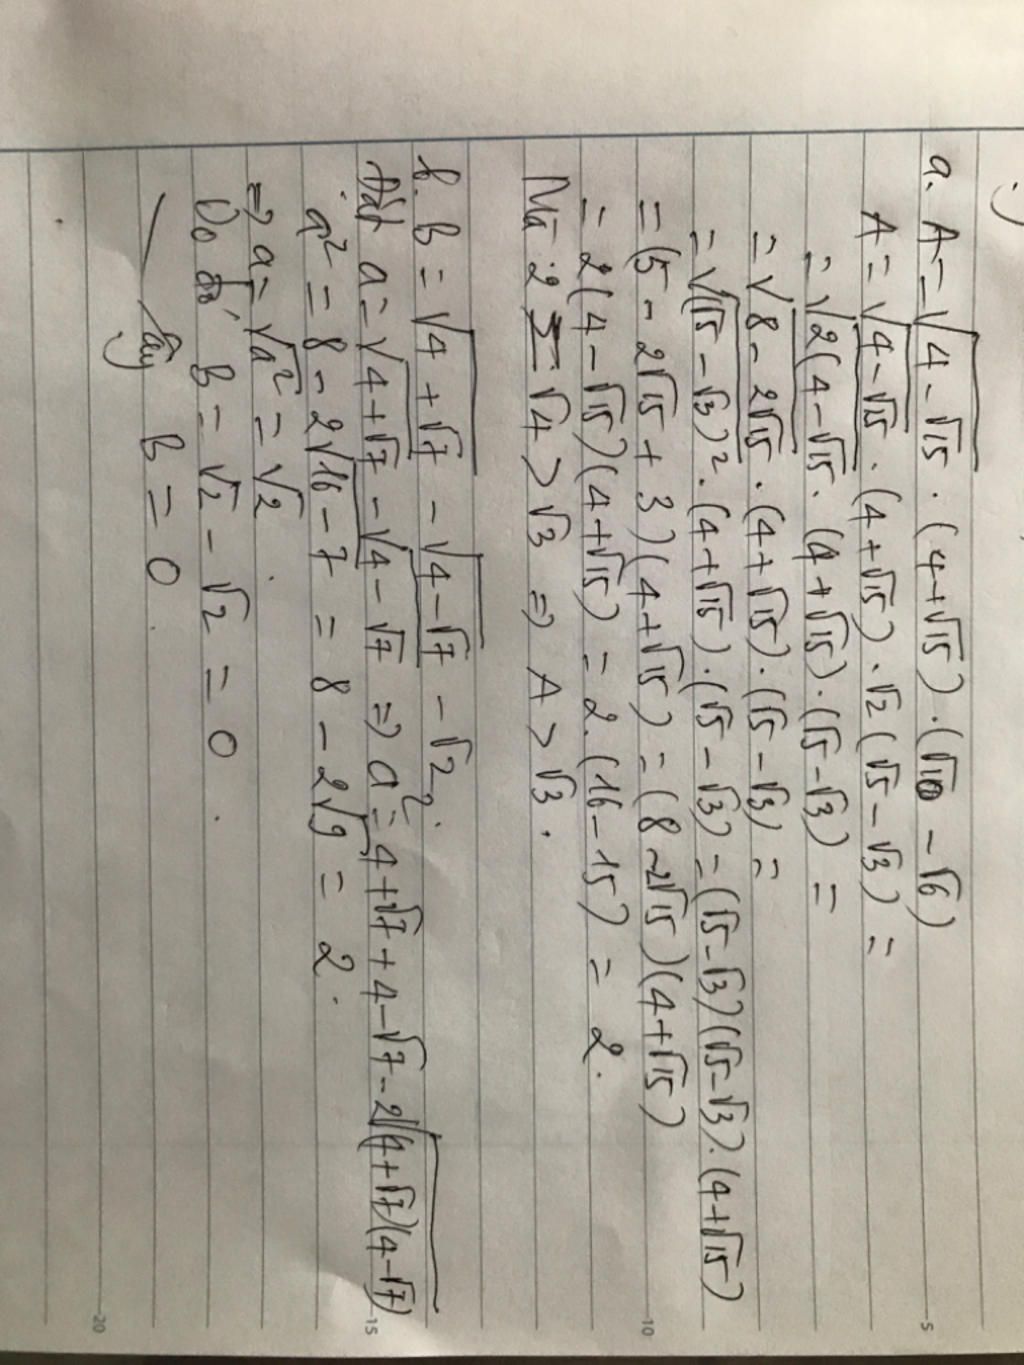 a. A = √(4 - √15) . (4 + √15) . (√10 - √6)
A = √(4 - √15) . (4 + √15) . √2 (√5 - √3) =
= √(2(4 - √15)) . (4 + √15) . (√5 - √3) =
= √(8 - 2√15) . (4 + √15) . (√5 - √3) =
= √(√5 - √3)² . (4 + √15) . (√5 - √3) = (√5 - √3)(√5 - √3) . (4 + √15)
= (5 - 2√15 + 3)(4 + √15) = (8 - 2√15)(4 + √15)
= 2(4 - √15)(4 + √15) = 2.(16 - 15) = 2.
Mà 2 = √4 > √3 => A > √3.
b. B = √(4 + √7) - √(4 - √7) - √2.
Đặt a = √(4 + √7) - √(4 - √7) => a² = 4 + √7 + 4 - √7 - 2√((4 + √7)(4 - √7))
a² = 8 - 2√(16 - 7) = 8 - 2√9 = 2.
=> a = √a² = √2.
Do đó B = √2 - √2 = 0.
Vậy B = 0.
-5
-10
-15
-20